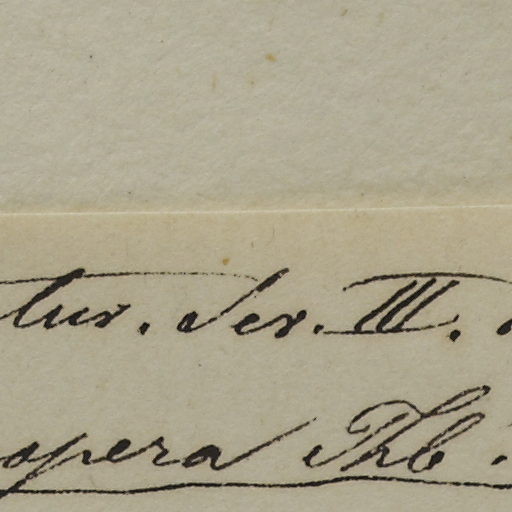 tur. Ser. III.
opera Thb.